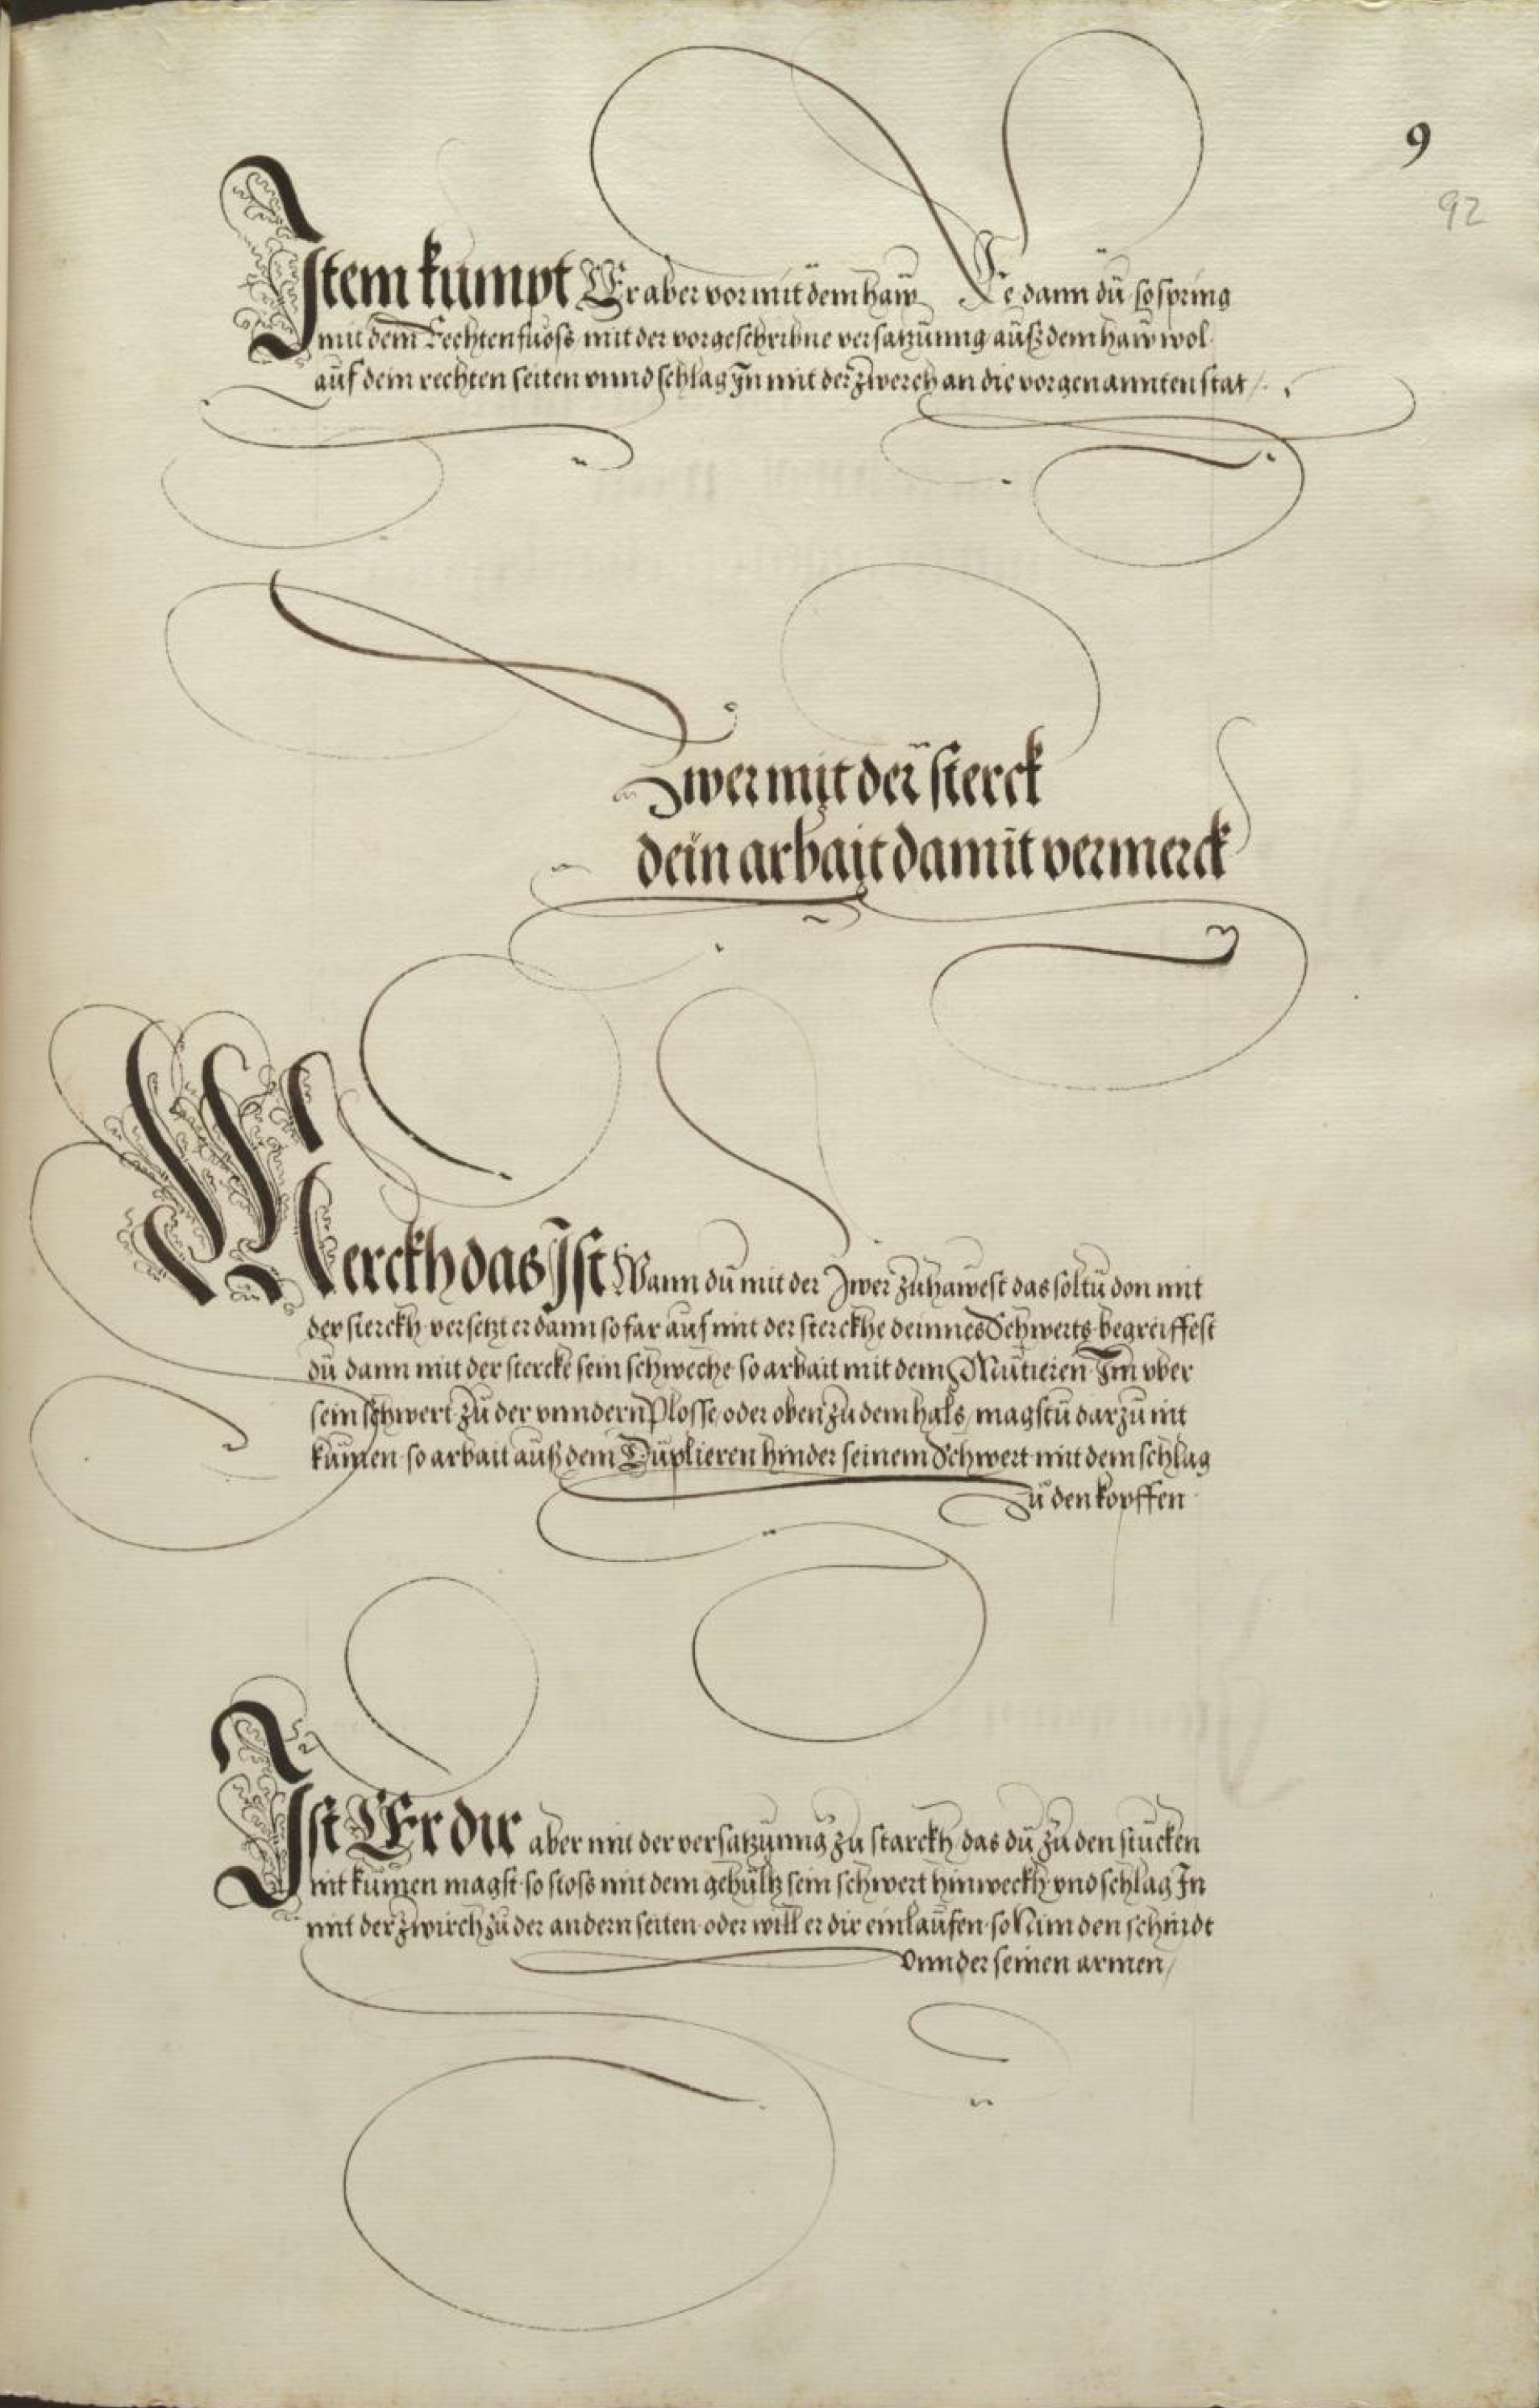 9
92
Jtem kumpt Er aber vor mit dem haw Ee dann dü so spring
mit dem Rechten fuoss mit der vorgeschribne versatzünng auß dem haw wol
aüf dein rechten seiten vnnd schlag Jn mit der zwerch an die vorgenannten stat /.
Zwer mit der sterck
dein arbait damit vermerck
Merckh das Jst Wann dü mit der Zwer zühawest das soltü don mit
der sterckh versetzt er dann so far auf mit der sterckhe deinnes Schwerts begreiffest
dü dann mit der stercke sein schweche so arbait mit dem Mütieren Jm vber
sein schwert zü der vnndern Plosse / oder oben zu dem hals / magstü darzü nit
kümen so arbait auß dem Düplieren hinder seinem Schwert mit dem schlag
Zü den kopffen
Jst Er dir aber mit der versatzünng zu starckh das dü zü den stucken
nit kumen magst so stoss mit dem gehültz sein schwert hinweckh vnd schlag Jn
mit der zwirch zü der andern seiten oder will er dir einlaüfen so Nim den schnidt
vnnder seinen armen /